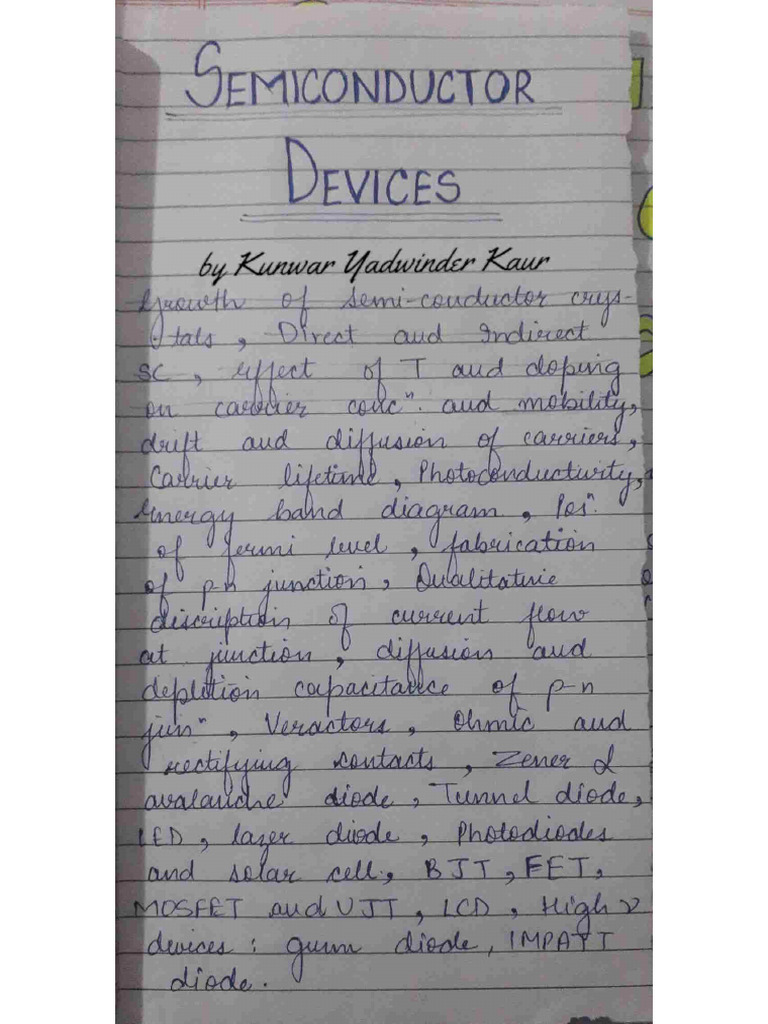 SEMICONDUCTOR
DEVICES
by Kunwar Yadwinder Kaur
Growth of semi-conductor crys-
tals, Direct and Indirect
SC, effect of T and doping
on carrier concⁿ. and mobility,
drift and diffusion of carriers,
Carrier lifetime, Photoconductivity,
energy band diagram, Posⁿ.
of fermi level, fabrication
of p-n junction, Qualitative
description of current flow
at junction, diffusion and
depletion capacitance of p-n
junⁿ, Veractors, Ohmic and
rectifying contacts, Zener &
avalanche diode, Tunnel diode,
LED, lazer diode, Photodiodes
and solar cell, BJT, FET,
MOSFET and UJT, LCD, High ν
devices: gunn diode, IMPATT
diode.